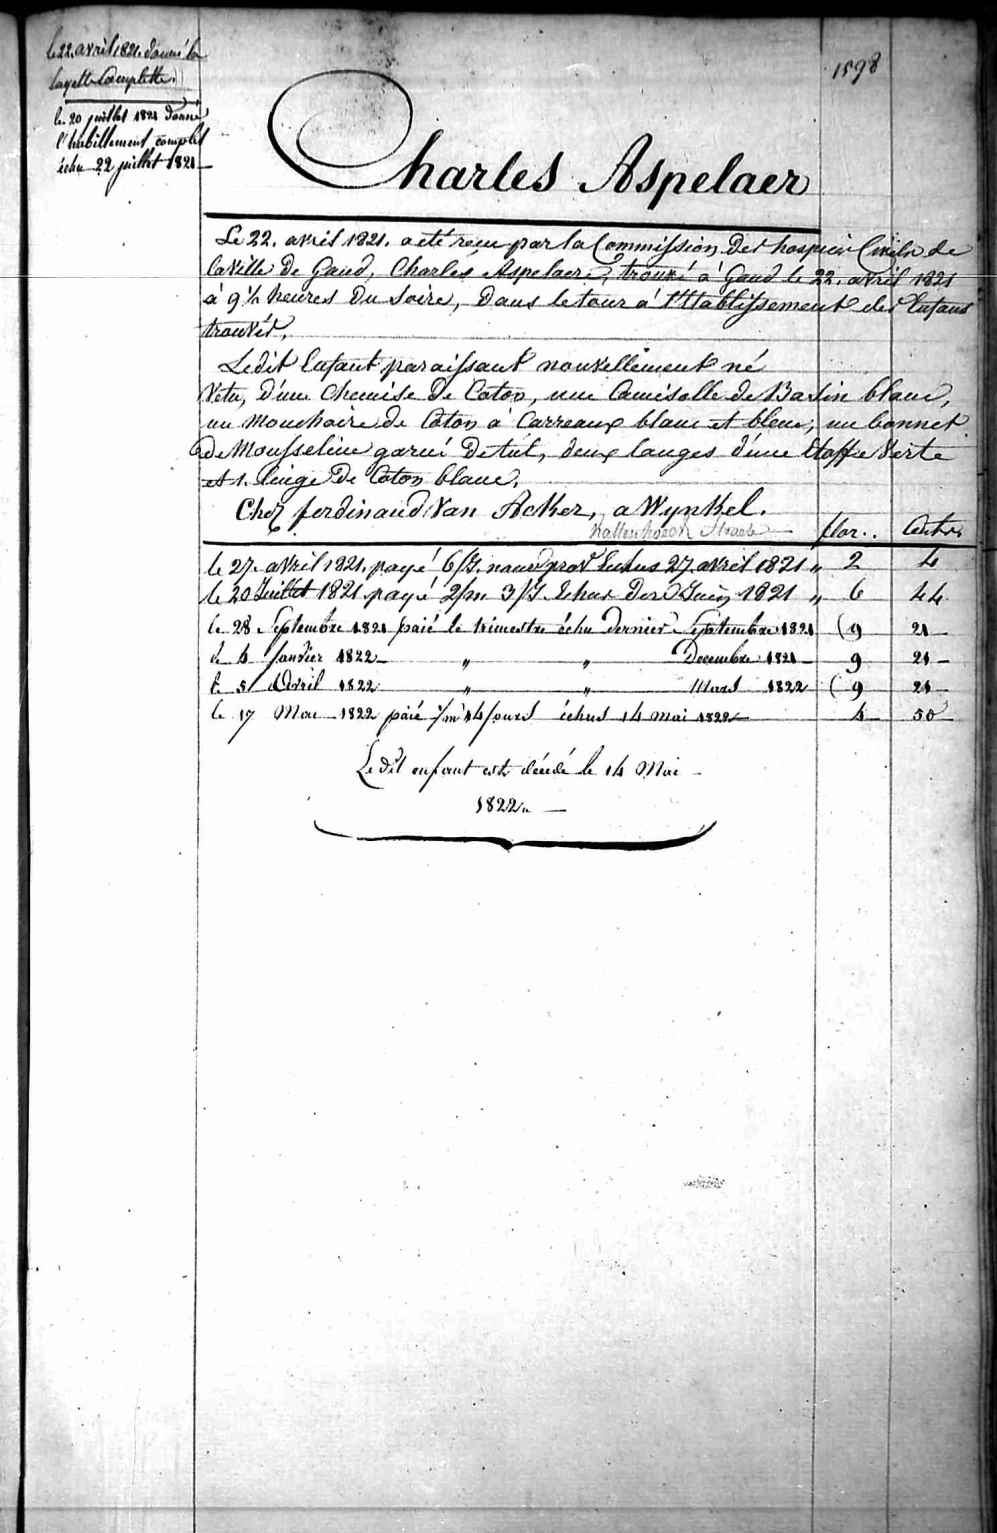 le 22. avril 1821. donné la
layette Complette.
le 20 juillet 1821 donné
l'habillement complet
échu 22 juillet 1821
1598
Charles Aspelaer
Le 22. avril 1821. a eté reçu par la Commission Des hospices Civils de
la Ville De Gand, Charles Aspelaer, trouvé a Gand le 22. avril 1821
à 9½ heures Du Soire, Dans le tour a l'Etablissement des Enfans
trouvés.
Ledit Enfant paraissant nouvellement né
Vetu, d'une Chemise De Coton, une Camisolle de Basin blanc,
un Mouchoire de Coton à Carreaux blanc et bleu, un bonnet
de Mousseline garni De tul, deux langes d'une Etoffe Verte
et 1. linge De Coton blanc.
Chez ferdinand Van Acker, a Wynkel.
Straete
flor.. Cents
le 27. avril 1821. payé 6/J. Echus 27 avril 1821 " 2 4
le 20 Juillet 1821 payé 2/m 3/J Echus Der Juin 1821 " 6 44
le 28 Septembre 1821 paié le trimestre échu dernier Septembre 1821 9 21
le 4 Janvier 1822 " " Decembre 1821 9 21
le 5 Avril 1822 " " Mars 1822 9 21
le 17 Mai 1822 paié 1/m 14 jours échus 14 mai 1822 4 50
Le dit enfant est décédé le 14 Mai
1822